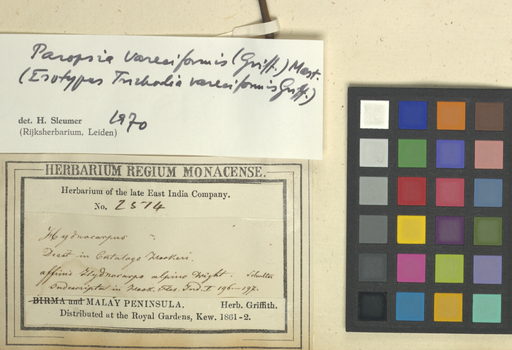 Paropsia vareciformis (Griff.) Mast.
(Isotypus Trichodia vareciformis Griff.)
det. H. Sleumer 1970
(Rijksherbarium. Leiden)
HERBARIUM REGIUM MONACENSE.
Herbarium of the late East India Company.
No. 2374
Hydnocarpus
Desit in Catalogo Hookeri.
affinis Hydnocarpo alpino Wight.
in Hook. Flor. Ind. I 196-197.
BIRMA and MALAY PENINSULA. Herb. Griffith.
Distributed at the Royal Gardens, Kew. 1861-2.